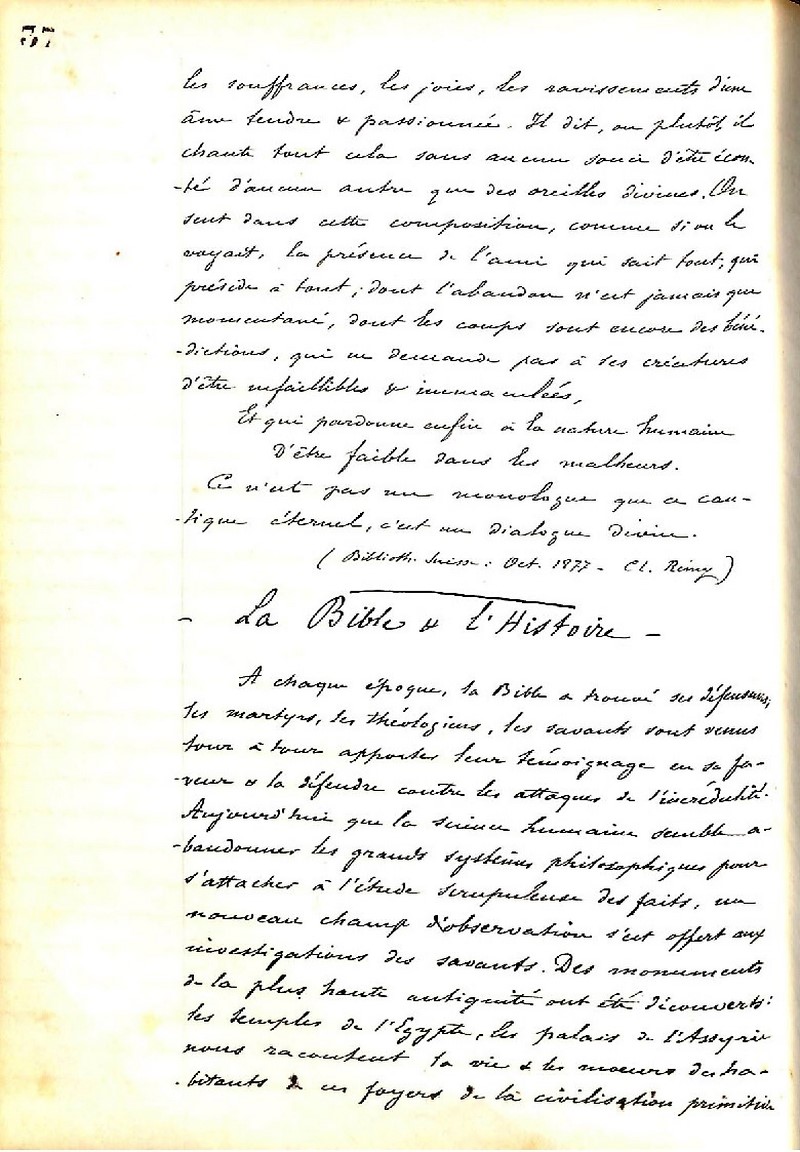 37
les souffrances, les joies, les ravissements d'une
âme tendre & passionnée. Il dit, ou plutôt, il
chante tout cela sans aucun souci d'être écou-
-té d'aucun autre que des oreilles divines. On
sent dans cette composition, comme si on le
voyait, la présence de l'ami qui sait tout, qui
préside à tout; dont l'abandon n'est jamais que
momentané, dont les coups sont encore des béné-
-dictions, qui ne demande pas à ses créatures
d'être infaillibles & immaculées,
Et qui pardonne enfin à la nature humaine
D'être faible dans les malheurs.
Ce n'est pas un monologue que ce can-
-tique éternel, c'est un dialogue divin.
(Biblioth. Suisse: Oct. 1877 - Cl. Rémy)
- La Bible & l'Histoire -
A chaque époque, la Bible a trouvé ses défenseurs;
les martyrs, les théologiens, les savants sont venus
tour à tour apporter leur témoignage en sa fa-
-veur & la défendre contre les attaques de l'incrédulité.
Aujourd'hui que la science humaine semble a-
-bandonner les grands systèmes philosophiques pour
s'attacher à l'étude scrupuleuse des faits, un
nouveau champ d'observation s'est offert aux
investigations des savants. Des monuments
de la plus haute antiquité ont été découverts:
les temples de l'Egypte, les palais de l'Assyrie
nous racontent la vie & les moeurs des ha-
-bitants de ces foyers de la civilisation primitive